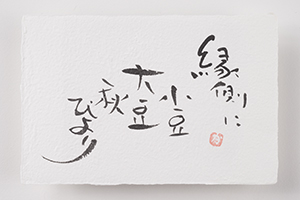 縁側に
小豆
大豆
秋
びより